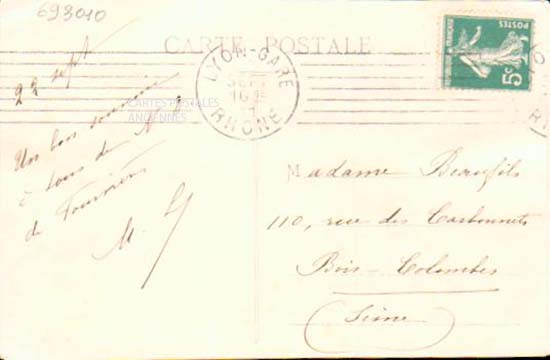 693010
CARTE POSTALE
POSTES
5c
LYON-GARE
RHONE
22 sept
CARTES POSTALES
ANCIENNES
Un bon souvenir
à tous de
de Fourvière
M.
Madame Beaufils
110, rue des Carbonnets
Bois-Colombes
Seine